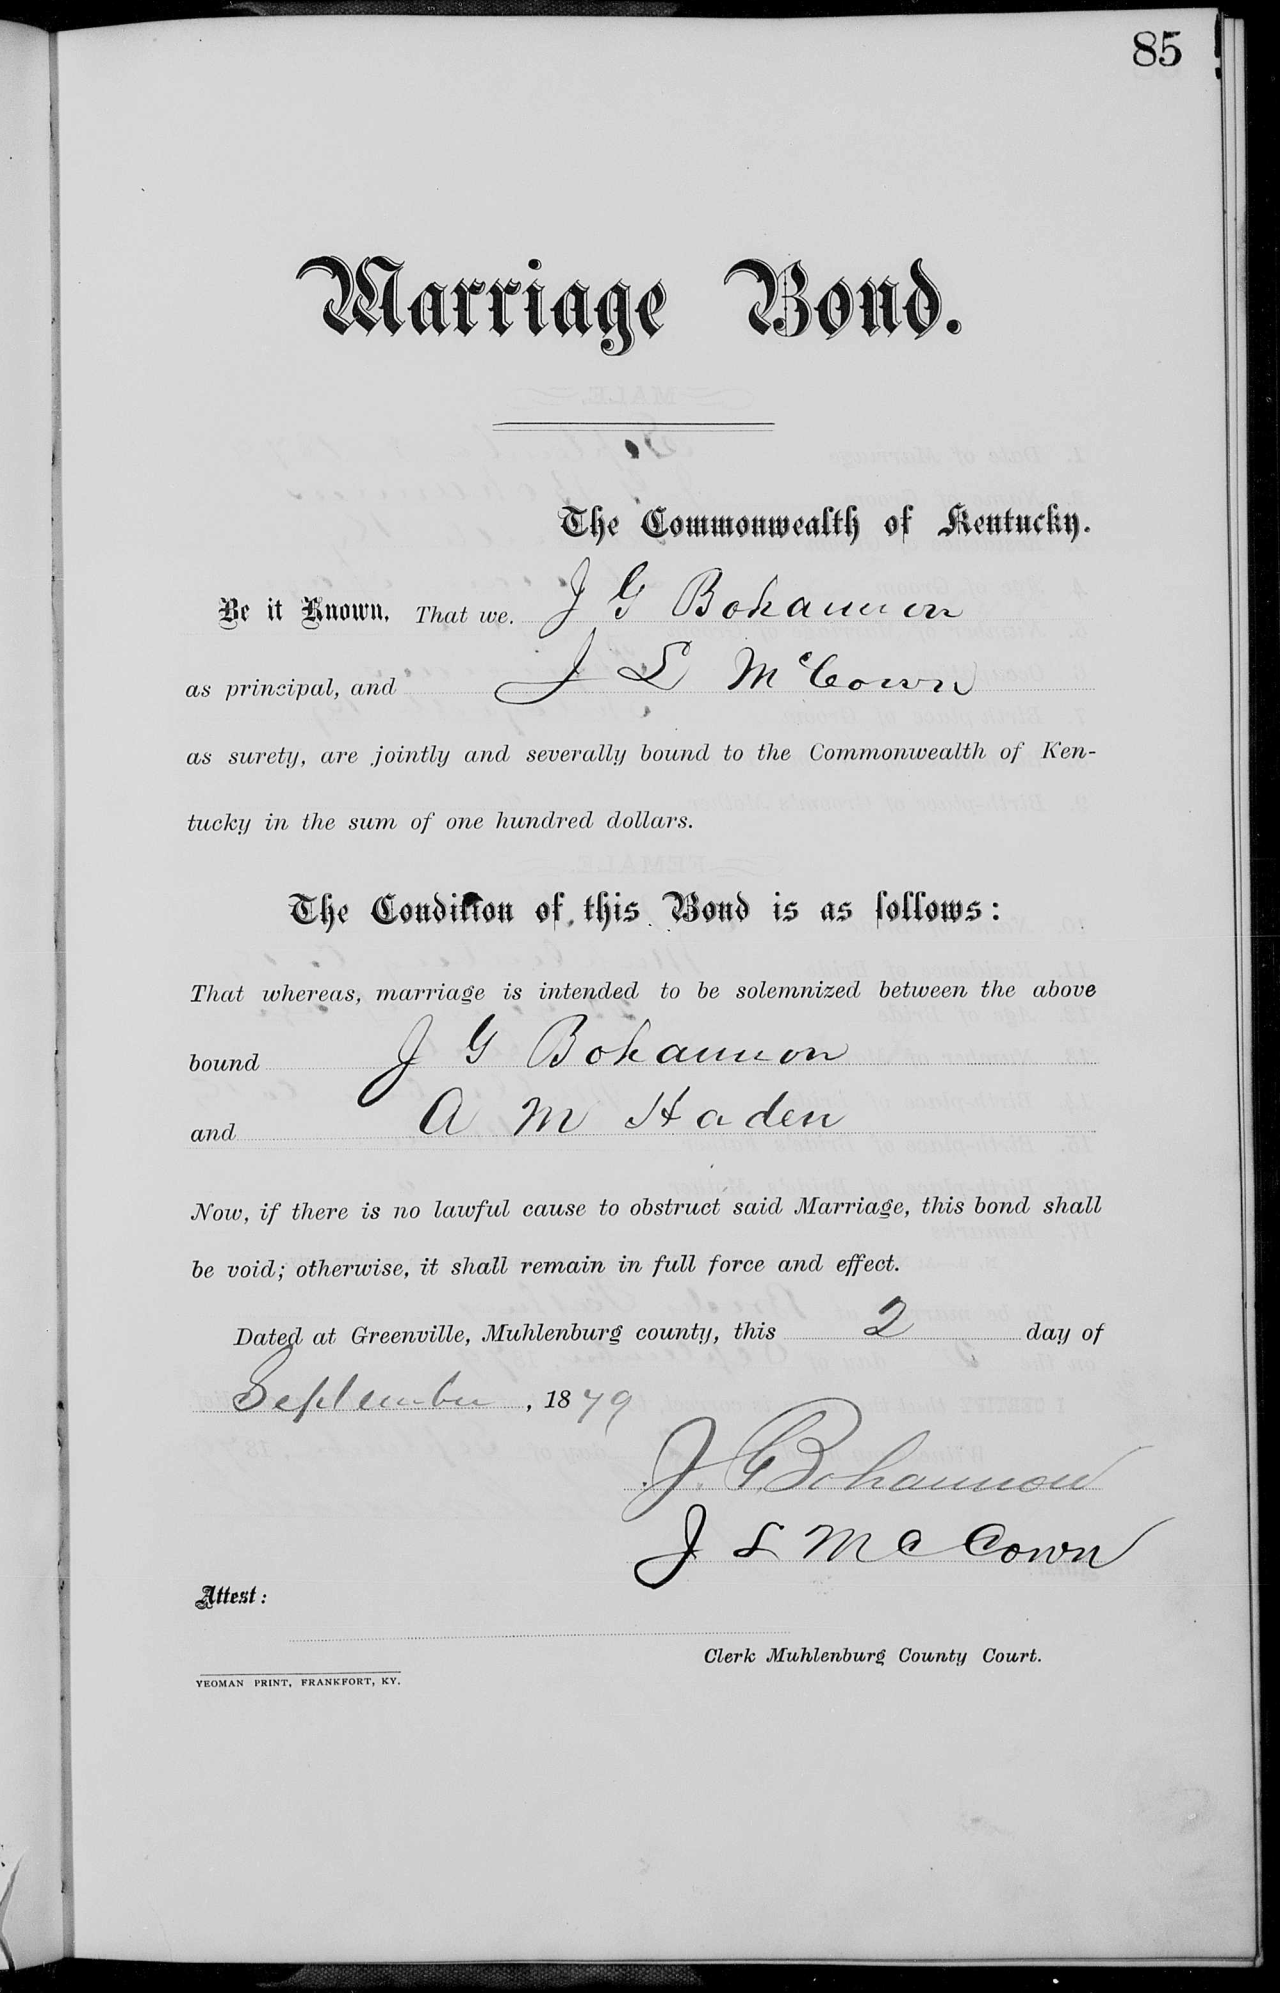 85
Marriage Bond.
The Commonwealth of Kentucky.
Be it Known, That we, J G Bohannon
as principal, and J L McCown
as surety, are jointly and severally bound to the Commonwealth of Ken-
tucky in the sum of one hundred dollars.
The Condition of this Bond is as follows:
That whereas, marriage is intended to be solemnized between the above
bound J G Bohannon
and A M Haden
Now, if there is no lawful cause to obstruct said Marriage, this bond shall
be void; otherwise, it shall remain in full force and effect.
Dated at Greenville, Muhlenburg county, this 2 day of
September, 1879
J. G Bohannon
J L McCown
Attest:
Clerk Muhlenburg County Court.
YEOMAN PRINT, FRANKFORT, KY.